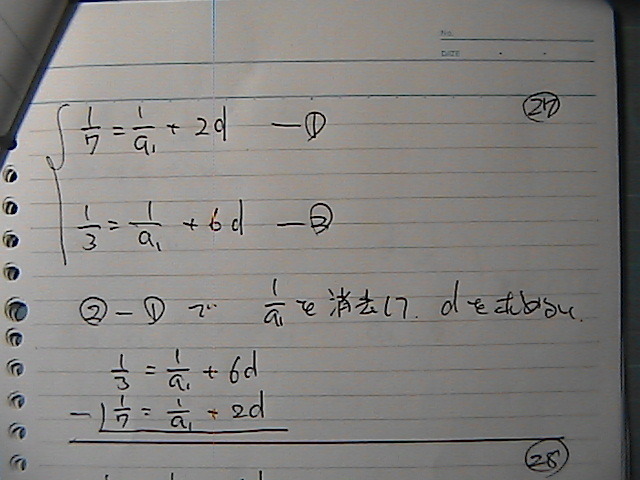 No.
DATE
㉗
1/7 = 1/a₁ + 2d —①
1/3 = 1/a₁ + 6d —②
②－① で 1/a₁ を消去して. d を求める.
1/3 = 1/a₁ + 6d
－) 1/7 = 1/a₁ + 2d
㉘